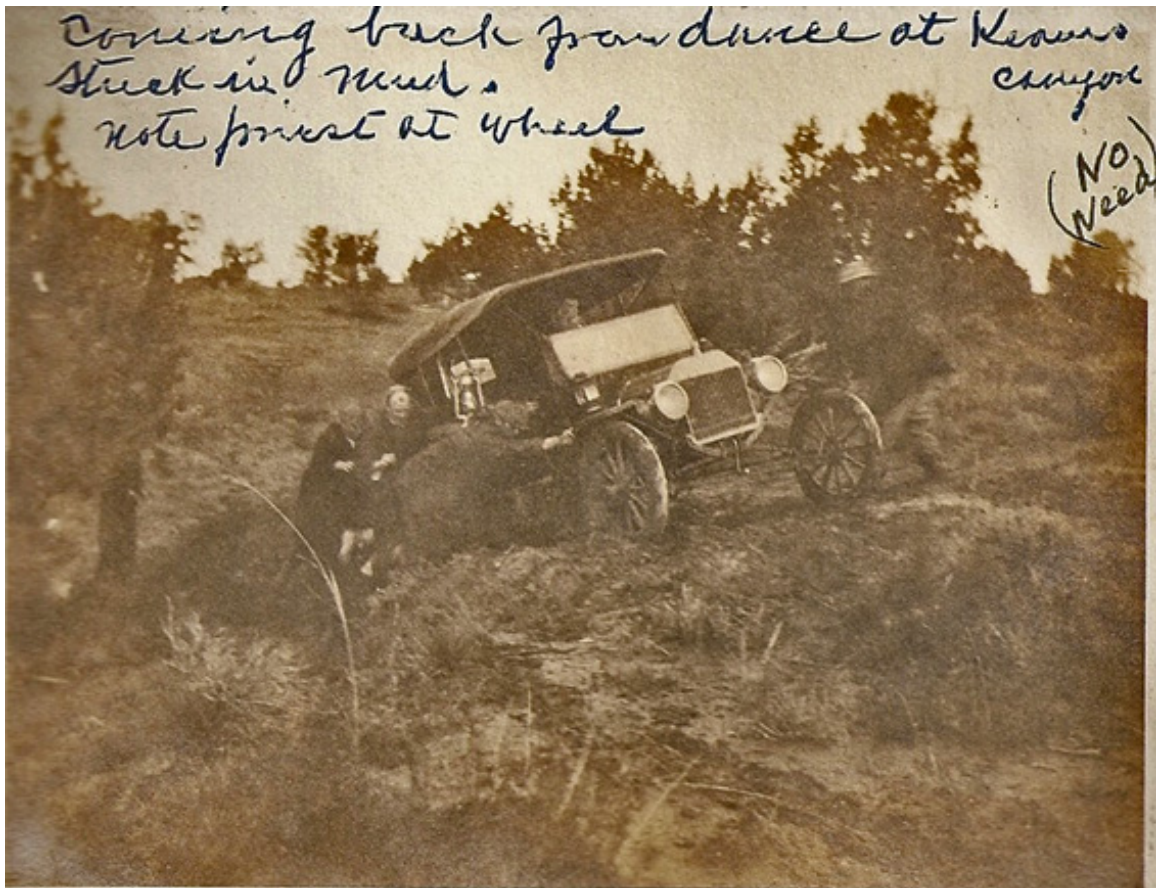 Coming back from dance at Keams
Canyon
Stuck in Mud.
Note priest at wheel
(NO
Need)